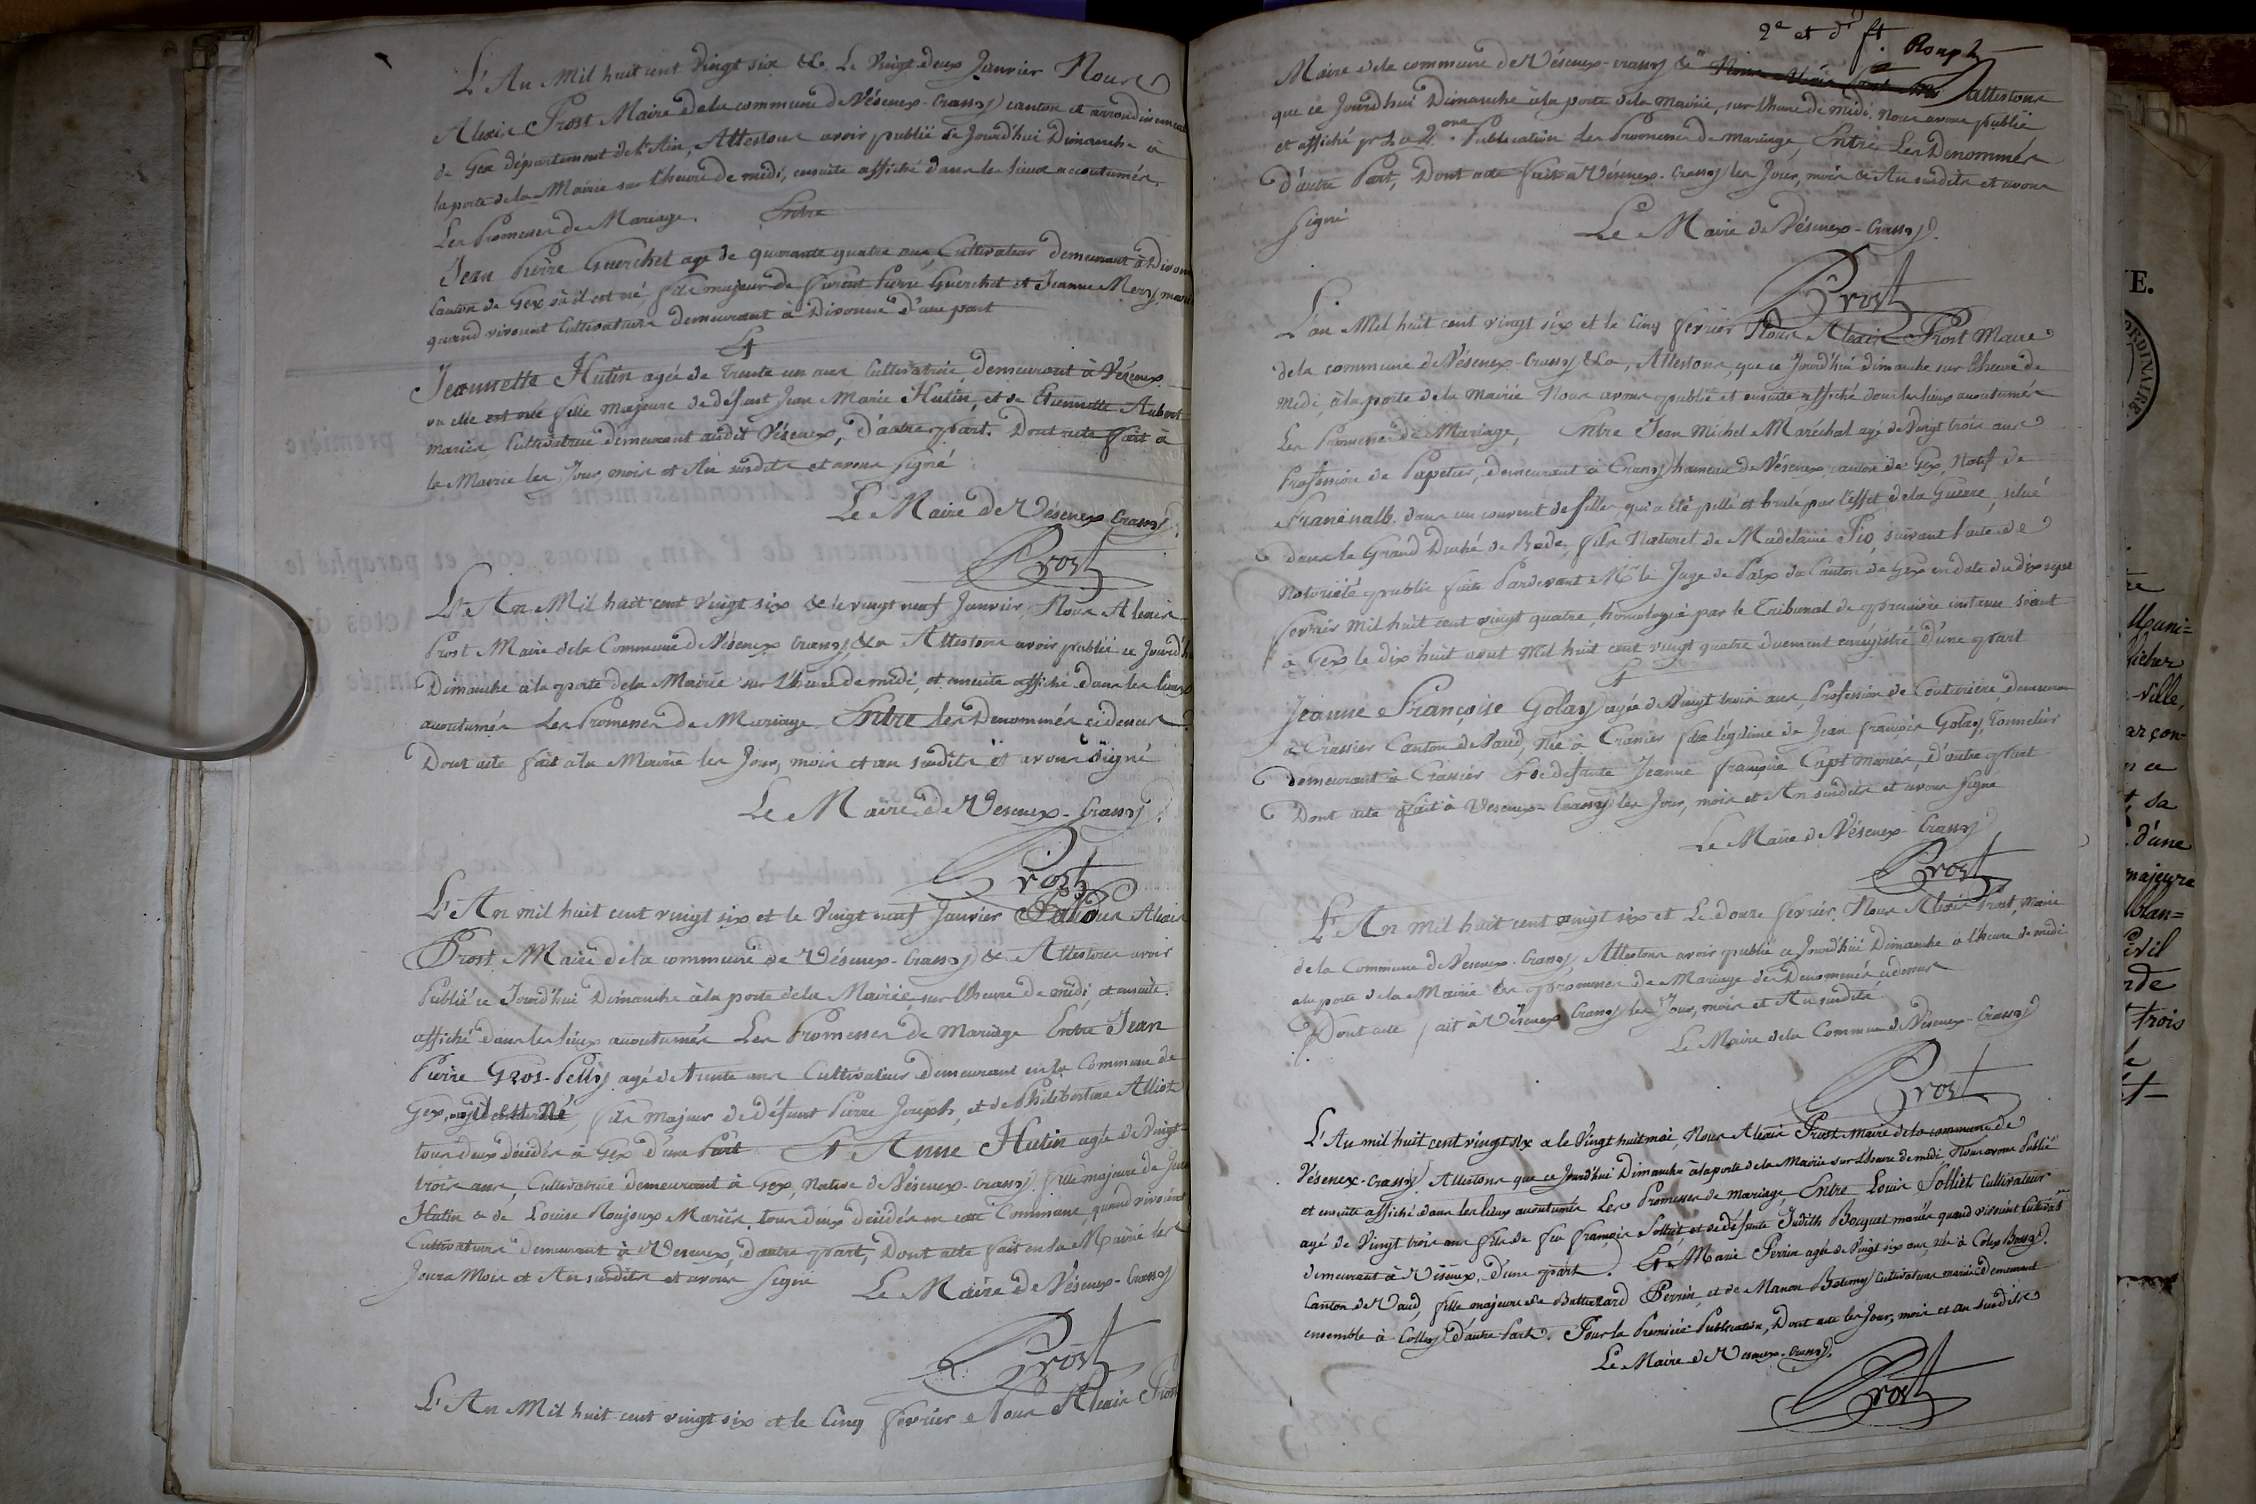 L'An Mil huit cent Vingt six &c Le Vingt deux Janvier Nous
Alexis Prost Maire de la commune de Vésenex-Crassy canton et arrondissement
de Gex département de l'Ain, Attestons avoir publié ce Jourd'hui Dimanche à
la porte de la Mairie sur l'heure de midi, ensuite affiché dans les lieux accoutumés,
Les Promesses de Mariage. Entre
Jean Pierre Guerchet agé de quarante quatre ans, Cultivateur demeurant à Divonne
Canton de Gex où il est né, fils majeur de furent Pierre Guerchet et Jeanne Mery, mariés
quand vivoient Cultivateurs demeurant à Divonne d'une part
Et
Jeannette Hutin agée de Trente un ans Cultivatrice demeurant à Vésenex
ou elle est née fille majeure de défunt Jean Marie Hutin, et de Etiennette Aubert
mariés Cultivatrice demeurant audit Vésenex, d'autre part. Dont acte fait à
la Mairie les Jour, mois et An susdits et avons signé
Le Maire de Vésenex Crassy
Prost
L'An Mil huit cent Vingt six & le vingt neuf Janvier, Nous Alexis
Prost Maire de la Commune de Vésenex Crassy, &a Attestons avoir publié ce Jourd'hui
Dimanche à la porte de la Mairie sur l'heure de midi, et ensuite affiché dans les lieux
accoutumés Les Promesses de Mariage Entre les Dénommés ci devant
Dont acte fait à la Mairie les Jour, mois et an susdits et avons signé
Le Maire de Vesenex-Crassy.
Prost
L'An mil huit cent vingt six et le Vingt neuf Janvier Nous Alexis
Prost Maire de la commune de Vésenex-Crassy & Attestons avoir
Publié ce Jourd'hui Dimanche à la porte de la Mairie, sur l'heure de midi, et ensuite
affiché dans les lieux accoutumés Les Promesses de Mariage Entre Jean
Pierre Gros-Pelly agé de trente ans Cultivateur demeurant en la Commune de
Gex, où il est Né, fils majeur de défunt Pierre Joseph, et de Philibertine Alliot
tous deux décédés à Gex d'une Part Et Anne Hutin agée de Vingt
trois ans, Cultivatrice demeurant à Gex, Native de Vésenex-Crassy, fille majeure de
Hutin & de Louise Roujoux Mariés, tous deux décédés en cette Commune, quand vivoient
Cultivateurs demeurant à Veseneux, d'autre part, Dont acte fait en la Mairie les
Jours Mois et An susdits et avons signé Le Maire de Vésenex-Crassy
Prost
L'An Mil huit cent vingt six et le Cinq février Nous Alexis Prost
2e et dr ft. Roup
Maire de la commune de Véseneux-crassy & attestons
que ce Jourd'hui Dimanche à la porte de la Mairie, sur l'heure de midi, nous avons publié
et affiché pr La 2.one Publication Les Promesses de mariage, Entre Les Dénommés
D'autre Part, Dont acte fait à Véseneux-Crassy les Jour, mois & An susdits et avons
signé
Le Maire de Véseneux-Crassy.
Prost
L'an Mil huit cent vingt six et le Cinq février Nous Alexis Prost Maire
de la commune de Véseneux-Crassy &a, Attestons, que ce Jourd'hui dimanche sur l'heure de
midi, à la porte de la Mairie Nous avons publié et ensuite affiché dans les lieux accoutumés
Les Promesses de Mariage, Entre Jean Michel Maréchal agé de Vingt trois ans
Profession de Papetier, demeurant à Crassy hameau de Véseneux, canton de Gex, Natif de
Franenalb. dans un couvent de filles qui a été pillé et brulé par l'effet de la Guerre, situé
dans le Grand Duché de Bade, fils Naturel de Madelaine Fio, suivant l'acte de
Notoriété publié faite Pardevant Mr le Juge de Paix du Canton de Gex en date du dix sept
février mil huit cent vingt quatre, homologué par le Tribunal de première instance séant
à Gex le dix huit aout Mil huit cent vingt quatre duement enregistré d'une part
Et
Jeanne Françoise Golay agée de Vingt trois ans, Profession de Couturière, demeurant
à Crassier Canton de Vaud, Née à Crassier fille légitime de Jean François Golay, Tonnelier
demeurant à Crassier Et de défunte Jeanne Françoise Capt mariés, d'autre part
Dont acte fait à Véseneux-Crassy les Jour, mois et An susdits et avons signé
Le Maire de Véseneux-Crassy
Prost
L'An mil huit cent vingt six et Le douze février. Nous Alexis Prost, Maire
de la Commune de Véseneux-Crassy, Attestons avoir publié ce Jourd'hui Dimanche à l'heure de midi
à la porte de la Mairie les promesses de Mariage des Dénommés ci devant
Dont acte fait à Véseneux Crassy les Jour, mois et An susdits
Le Maire de la Commune de Véseneux-Crassy
Prost
L'An mil huit cent vingt six & le Vingt huit mai, Nous Alexis Prost Maire de la commune de
Véseneux-Crassy Attestons que ce Jourd'hui Dimanche à la porte de la Mairie sur l'heure de midi Nous avons Publié
et ensuite affiché dans les lieux accoutumés Les Promesses de mariage, Entre Louis Solliet Cultivateur
agé de Vingt trois ans fils de feu François Solliet et de défunte Judith Bocquet mariés quand vivoient Cultivatrs
demeurant à Véseneux, d'une part. Et Marie Perrin agée de Vingt six ans, née à Colex Bossy.
Canton de Vaud, fille majeure de Baltazard Perrin, et de Manon Botemy Cultivateurs mariés demeurant
ensemble à Collex d'autre Part. Pour la Première Publication, Dont acte les Jour, mois et an susdits
Le Maire de Véseneux-Crassy,
Prost